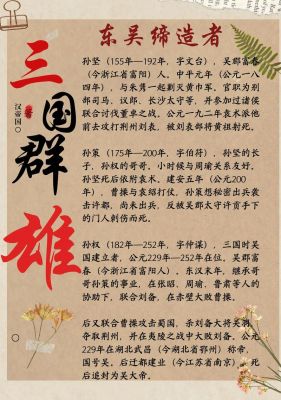 东吴缔造者
三国群雄
汉帝国
孙坚（155年—192年，字文台），吴郡富
（今浙江省富阳）人，中平元年（公元一八
四年），与朱隽一起剿灭黄巾军，官职为别
部司马、议郎、长沙太守等，并参加过诸侯
联合讨伐董卓之战。公元一九二年袁术派他
前去攻打荆州刘表，被刘表部将黄祖射死。
孙策（175年—200年，字伯符），孙坚的长
子，孙权的哥哥，小时候与周瑜关系友好。
孙坚死后依附袁术。建安五年（公元200
年），曹操与袁绍打仗，孙策想秘密出兵袭
击许都，尚未出兵，反被吴郡太守许贡手下
的门人刺伤而死。
孙权（182年—252年，字仲谋），三国时吴
国建立者，公元229年—252年在位，吴郡富
春（今浙江省富阳人），东汉末年，继承哥
哥孙策的事业，在张昭、周瑜、鲁肃等人的
协助下，联合刘备，在赤壁大败曹操。
后又联合曹操攻击蜀国，杀刘备大将关羽，
夺取荆州，并在夷陵之战中大败刘备。公元
229年在湖北武昌（今湖北省鄂州）称帝，
国号吴。后迁都建业（今江苏省南京），死
后追封为吴大帝。